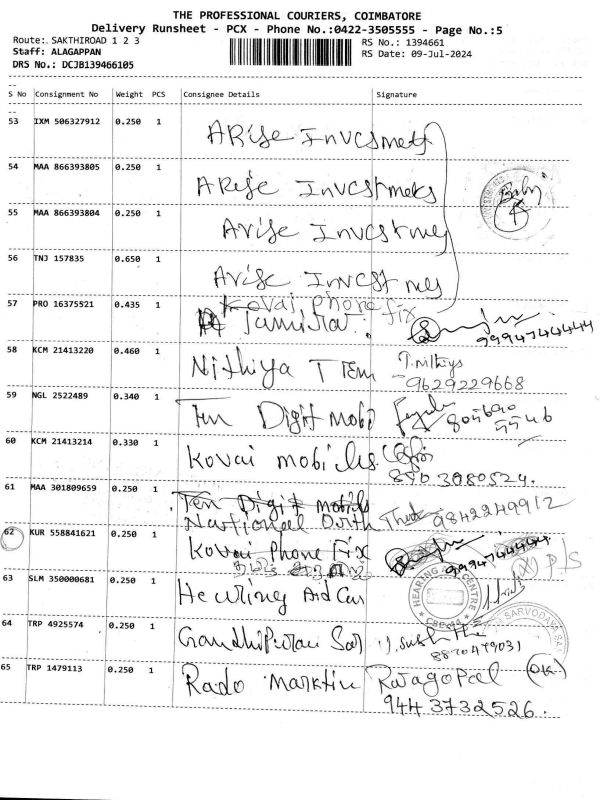 THE PROFESSIONAL COURIERS, COIMBATORE
Delivery Runsheet - PCX - Phone No.:0422-3505555 - Page No.:5
Route: SAKTHIROAD 1 2 3
RS No.: 1394661
Staff: ALAGAPPAN
RS Date: 09-Jul-2024
DRS No.: DCJB139466105
S No Consignment No Weight PCS Consignee Details Signature
53 IXM 506327912 0.250 1 ARise Invesmets
54 MAA 866393805 0.250 1 ARise Investmets
55 MAA 866393804 0.250 1 Arise Investmes
56 TNJ 157835 0.650 1 Arise Investmes
Kovai phone fix
57 PRO 16375521 0.435 1
9994744444
58 KCM 21413220 0.460 1 Nithiya T Tem T. Nithiya
9629229668
59 NGL 2522489 0.340 1 Ten Digit mobi
60 KCM 21413214 0.330 1 Kovai mobiles
8903080524.
61 MAA 301809659 0.250 1 Ten Digit mobils
National 9842249912
62 KUR 558841621 0.250 1 Kovai Phone Fix
9994744444
P/S
63 SLM 350000681 0.250 1 Hearing Aid Cen
HEARING CENTRE
64 TRP 4925574 0.250 1 Gandhipuram Sar
8870479031
SARVODAYA
65 TRP 1479113 0.250 1 Rado Marktin Rajagopal (OK)
9443732526.